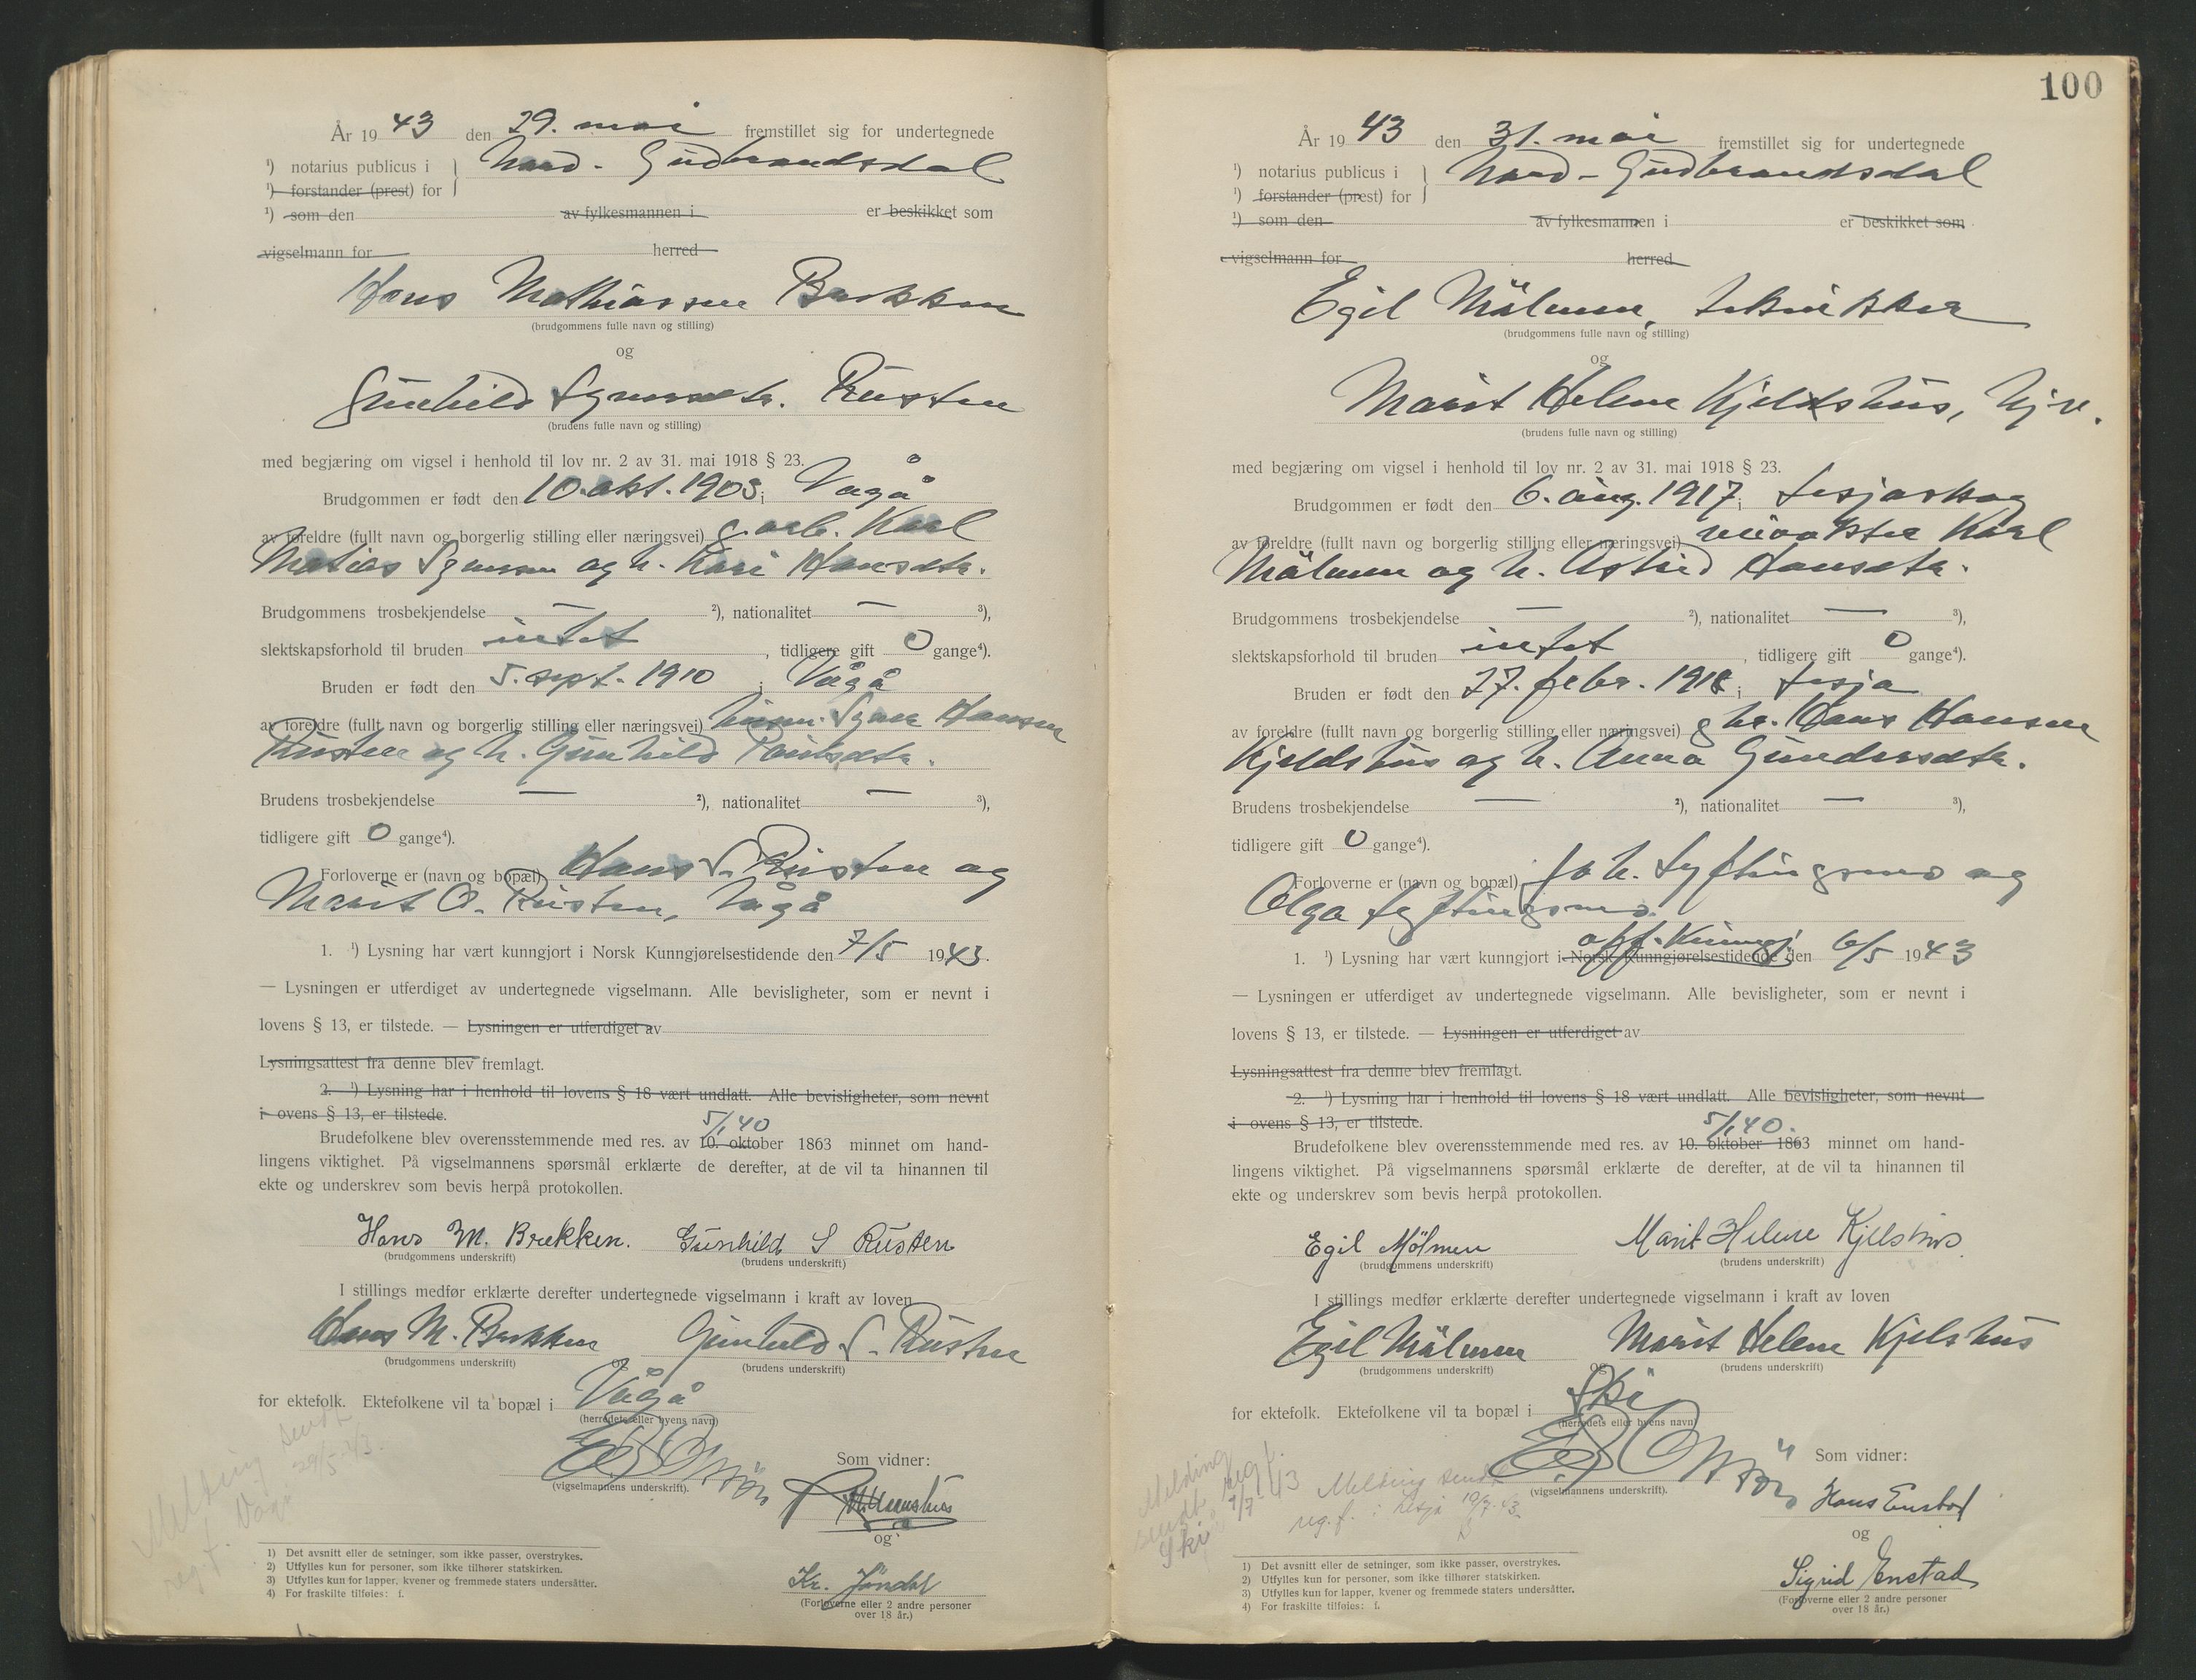 År 1943 den 29. mai fremstillet sig for undertegnede
¹) notarius publicus i } Nord-Gudbrandsdal
¹) forstander (prest) for
¹) som den av fylkesmannen i er beskikket som
vigselmann for herred
Hans Mathiassen Brekken
(brudgommens fulle navn og stilling)
og
Gunhild Syversdtr. Rusten
(brudens fulle navn og stilling)
med begjæring om vigsel i henhold til lov nr. 2 av 31. mai 1918 § 23.
Brudgommen er født den 10. okt. 1903 i Vågå
av foreldre (fullt navn og borgerlig stilling eller næringsvei) g.arb. Karl
Matias Syversen og h. Kari Hansdtr.
Brudgommens trosbekjendelse — ²), nationalitet — ³),
slektskapsforhold til bruden intet , tidligere gift 0 gange⁴).
Bruden er født den 5. sept. 1910 i Vågå
av foreldre (fullt navn og borgerlig stilling eller næringsvei) Syver Hansen
Rusten og h. Gunhild Poulsdtr.
Brudens trosbekjendelse — ²), nationalitet — ³),
tidligere gift 0 gange⁴).
Forloverne er (navn og bopæl) Hans S. Rusten og
Marit O. Rusten, Vågå
1. ¹) Lysning har vært kunngjort i Norsk Kunngjørelsestidende den 7/5 1943.
— Lysningen er utferdiget av undertegnede vigselmann. Alle bevisligheter, som er nevnt i
lovens § 13, er tilstede. — Lysningen er utferdiget av
Lysningsattest fra denne blev fremlagt.
2. ¹) Lysning har i henhold til lovens § 18 vært undlatt. Alle bevisligheter, som nevnt
i ovens § 13, er tilstede.
5/1 40
Brudefolkene blev overensstemmende med res. av 10. oktober 1863 minnet om hand-
lingens viktighet. På vigselmannens spørsmål erklærte de derefter, at de vil ta hinannen til
ekte og underskrev som bevis herpå protokollen.
Hans M. Brekken. Gunhild S Rusten
(brudgommens underskrift) (brudens underskrift)
I stillings medfør erklærte derefter undertegnede vigselmann i kraft av loven
Hans M. Brekken Gunhild S. Rusten
(brudgommens underskrift) og (brudens underskrift)
for ektefolk. Ektefolkene vil ta bopæl i Vågå
(herredets eller byens navn)
Melding sendt
reg.f. Vågå 29/5-43.
Som vidner:
(vigselmannens underskrift).
og
Kr. Jøndal
(Forloverne eller 2 andre personer
over 18 år.)
1) Det avsnitt eller de setninger, som ikke passer, overstrykes.
2) Utfylles kun for personer, som ikke tilhører statskirken.
3) Utfylles kun for lapper, kvener og fremmede staters undersåtter.
4) For fraskilte tilføies: f.
100
År 1943 den 31. mai fremstillet sig for undertegnede
¹) notarius publicus i } Nord-Gudbrandsdal
¹) forstander (prest) for
¹) som den av fylkesmannen i er beskikket som
vigselmann for herred
Egil Mölmen, tekniker
(brudgommens fulle navn og stilling)
og
Marit Helene Kjeldshus, Hjv.
(brudens fulle navn og stilling)
med begjæring om vigsel i henhold til lov nr. 2 av 31. mai 1918 § 23.
Brudgommen er født den 6. aug. 1917 i Lesjaskog
av foreldre (fullt navn og borgerlig stilling eller næringsvei) Karl
Mölmen og h. Astrid Hansdtr.
Brudgommens trosbekjendelse — ²), nationalitet — ³),
slektskapsforhold til bruden intet , tidligere gift 0 gange⁴).
Bruden er født den 27. febr. 1918 i Lesja
av foreldre (fullt navn og borgerlig stilling eller næringsvei) gbr. Hans Hansen
Kjeldshus og h. Anna Gundersdtr.
Brudens trosbekjendelse — ²), nationalitet — ³),
tidligere gift 0 gange⁴).
Forloverne er (navn og bopæl) Joh. Lyftingsmo og
Olga Lyftingsmo.
off. Kunngj.
1. ¹) Lysning har vært kunngjort i Norsk Kunngjørelsestidende den 6/5 1943
— Lysningen er utferdiget av undertegnede vigselmann. Alle bevisligheter, som er nevnt i
lovens § 13, er tilstede. — Lysningen er utferdiget av
Lysningsattest fra denne blev fremlagt.
2. ¹) Lysning har i henhold til lovens § 18 vært undlatt. Alle bevisligheter, som nevnt
i ovens § 13, er tilstede.
5/1 40.
Brudefolkene blev overensstemmende med res. av 10. oktober 1863 minnet om hand-
lingens viktighet. På vigselmannens spørsmål erklærte de derefter, at de vil ta hinannen til
ekte og underskrev som bevis herpå protokollen.
Egil Mölmen Marit Helene Kjelshus
(brudgommens underskrift) (brudens underskrift)
I stillings medfør erklærte derefter undertegnede vigselmann i kraft av loven
Egil Mölmen Marit Helene Kjelshus
(brudgommens underskrift) og (brudens underskrift)
for ektefolk. Ektefolkene vil ta bopæl i Ski
(herredets eller byens navn)
Melding
sendt reg f.
Ski 9/7-43
Melding sendt
reg.f. i Lesja 10/7.43.
Som vidner:
(vigselmannens underskrift).
Hans Enstad
og
Sigrid Enstad
(Forloverne eller 2 andre personer
over 18 år.)
1) Det avsnitt eller de setninger, som ikke passer, overstrykes.
2) Utfylles kun for personer, som ikke tilhører statskirken.
3) Utfylles kun for lapper, kvener og fremmede staters undersåtter.
4) For fraskilte tilføies: f.